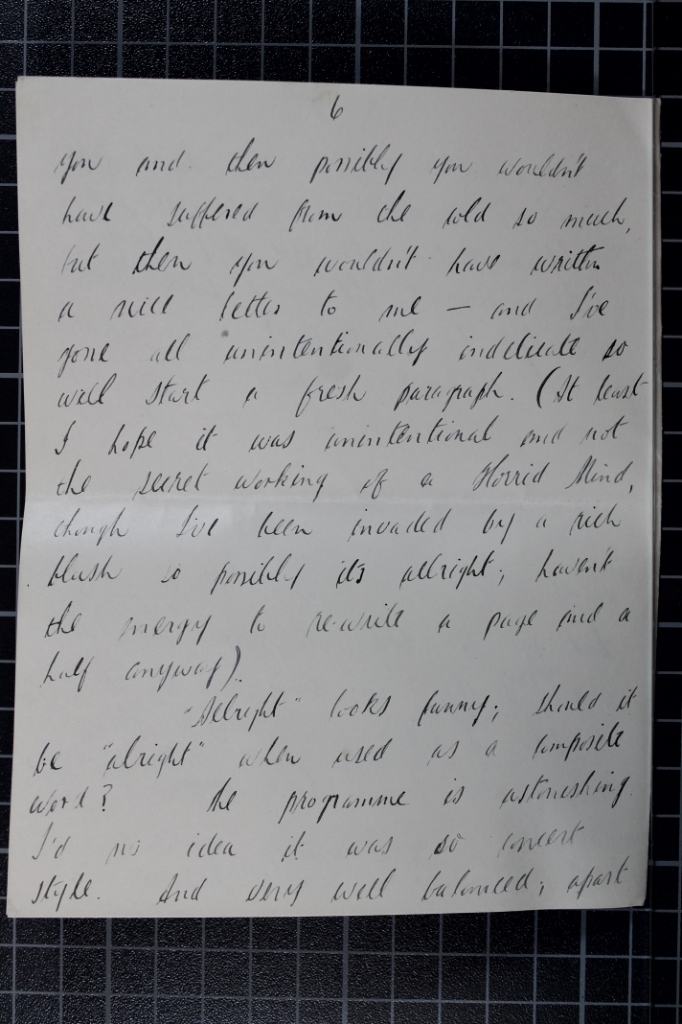 6
you and then possibly you wouldn't
have suffered from the cold so much,
but then you wouldn't have written
a nice letter to me — and I've
gone all unintentionally indelicate so
will start a fresh paragraph. (At least
I hope it was unintentional and not
the secret working of a Horrid Mind,
though I've been invaded by a rich
blush so possibly its allright; haven't
the energy to re-write a page and a
half anyway).
"Allright" looks funny; should it
be "alright" when used as a composite
word? The programme is astonishing.
I'd no idea it was so concert
style. And very well balanced; apart